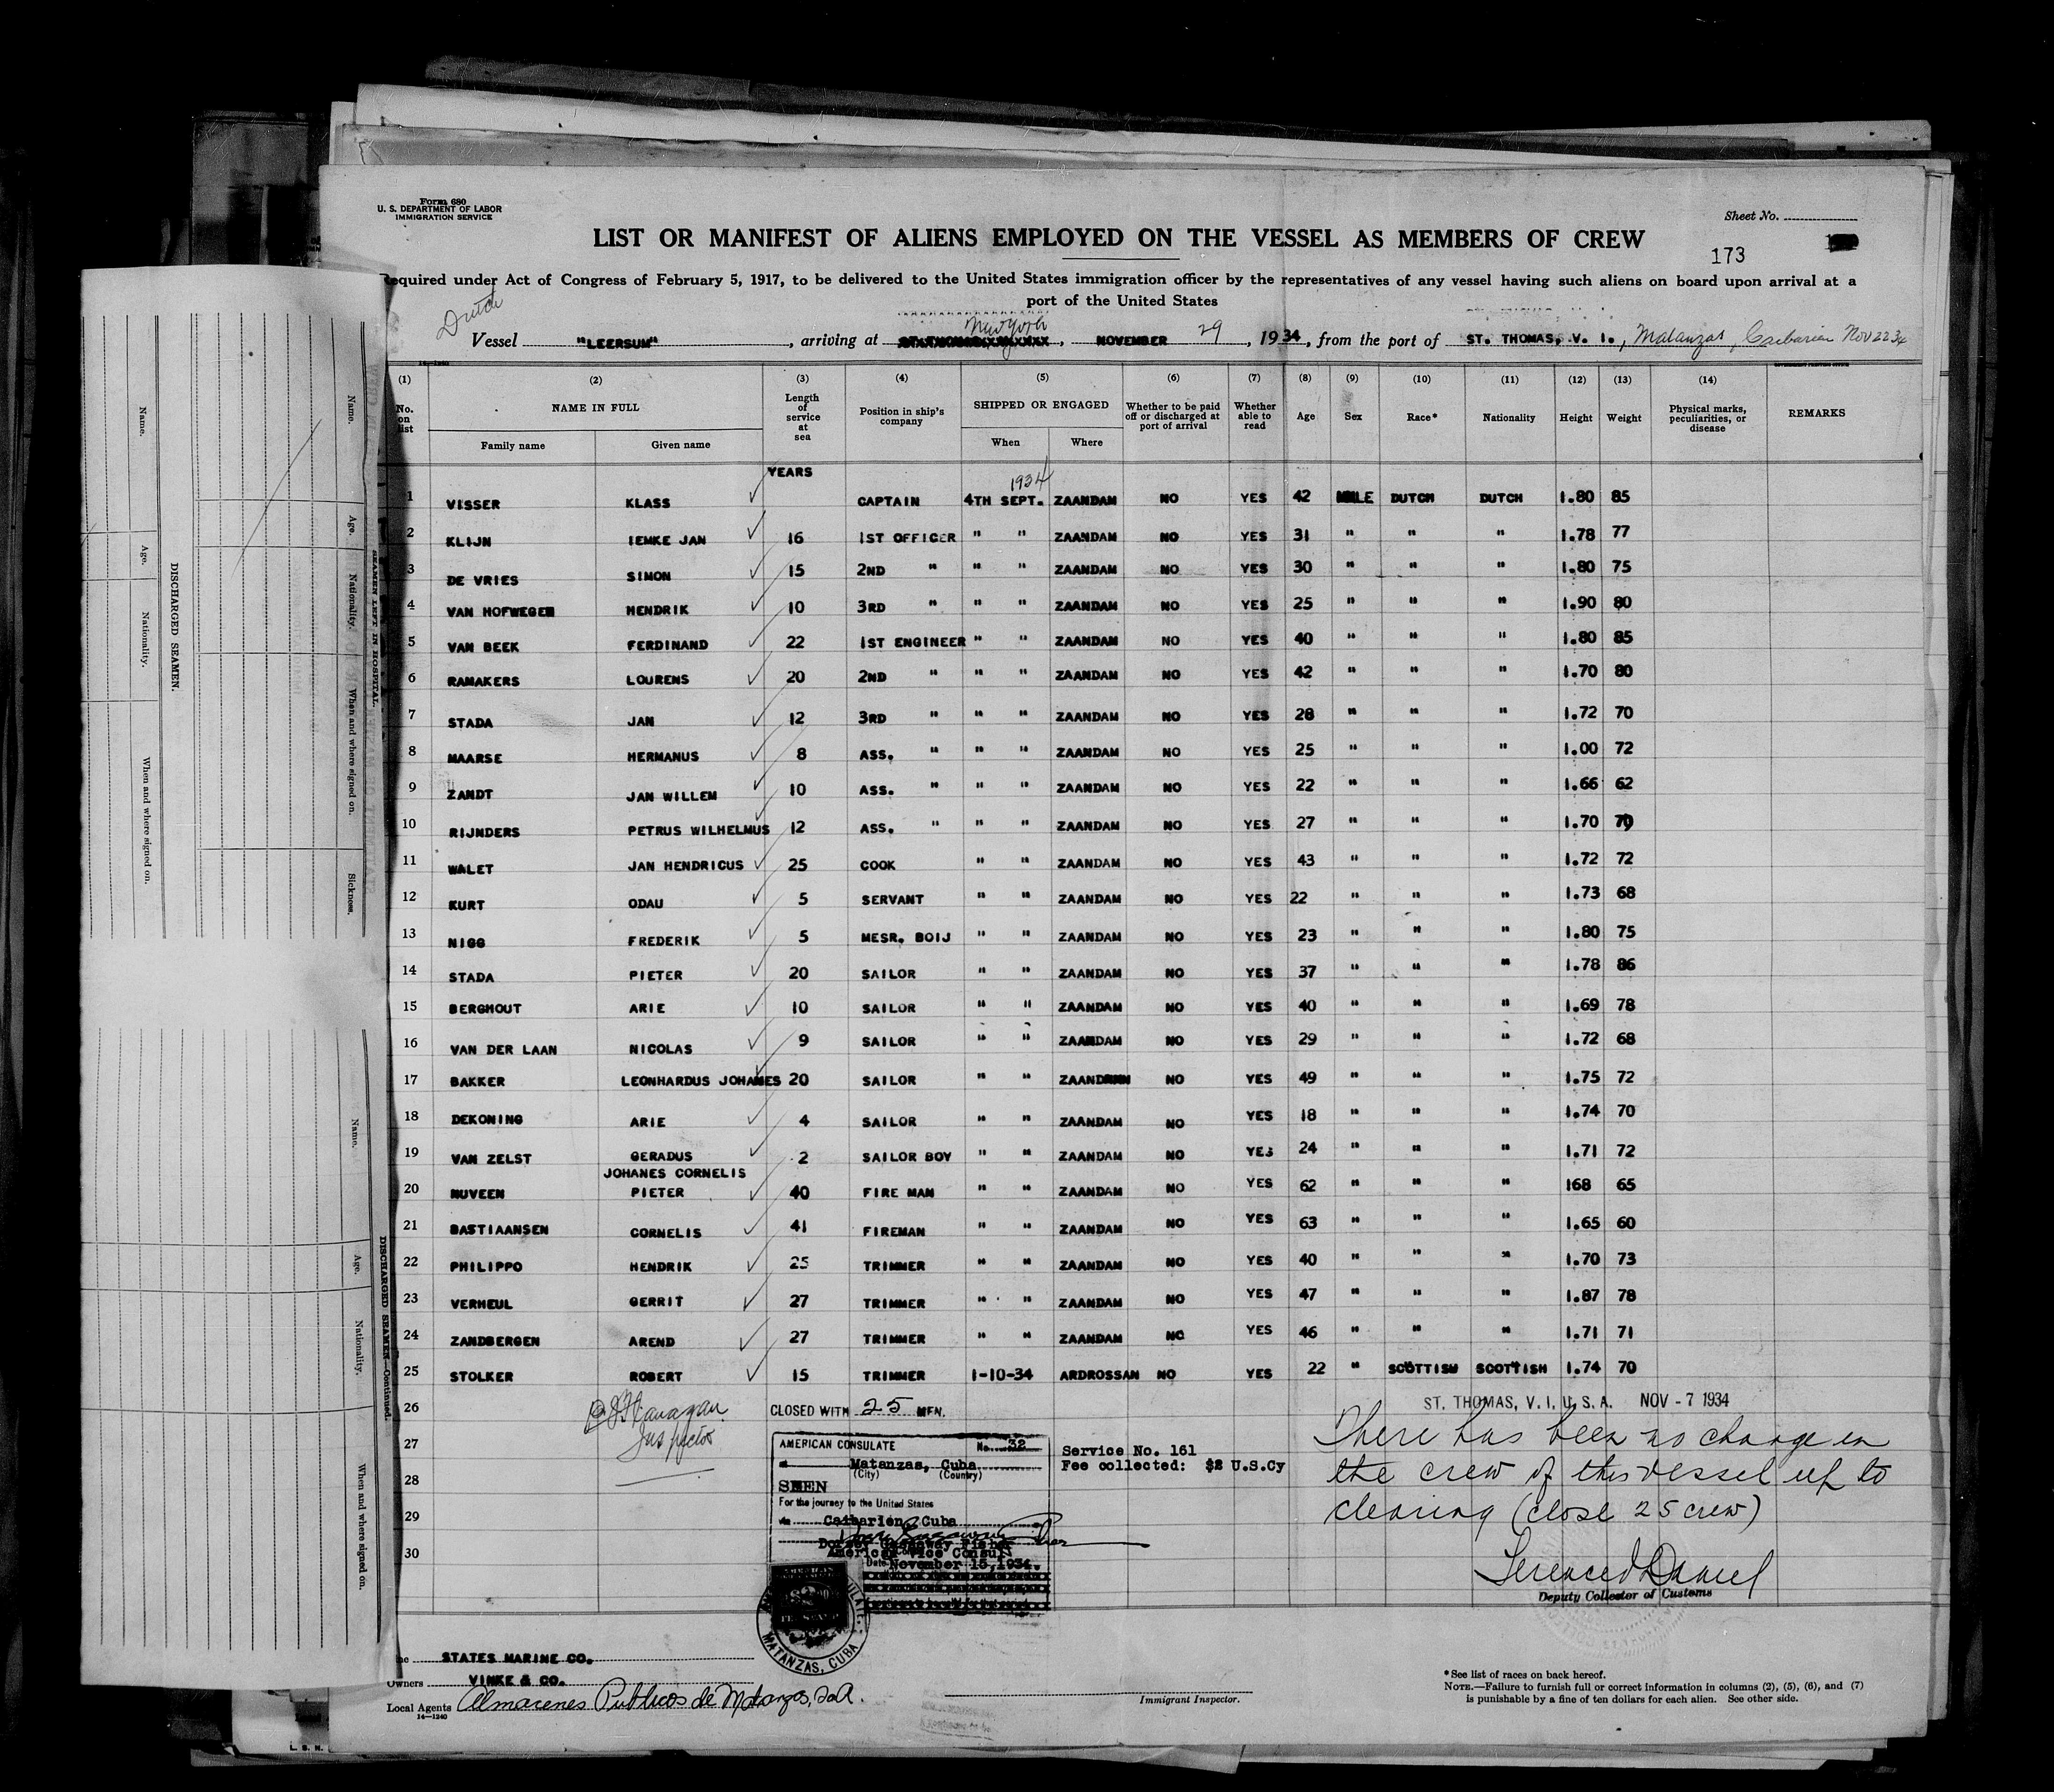 Form 680
U. S. DEPARTMENT OF LABOR
IMMIGRATION SERVICE
Sheet No.
LIST OR MANIFEST OF ALIENS EMPLOYED ON THE VESSEL AS MEMBERS OF CREW
173
Required under Act of Congress of February 5, 1917, to be delivered to the United States immigration officer by the representatives of any vessel having such aliens on board upon arrival at a
port of the United States
Dutch
New York
Vessel "LEERSUM", arriving at , NOVEMBER 29, 1934, from the port of ST. THOMAS, V. I., Matanzas, Caibarien Nov 22 34
(1) (2) (3) (4) (5) (6) (7) (8) (9) (10) (11) (12) (13) (14)
No. on list NAME IN FULL Length of service at sea Position in ship's company SHIPPED OR ENGAGED Whether to be paid off or discharged at port of arrival Whether able to read Age Sex Race* Nationality Height Weight Physical marks, peculiarities, or disease REMARKS
Family name Given name When Where
YEARS 1934
1 VISSER KLASS CAPTAIN 4TH SEPT. ZAANDAM NO YES 42 MALE DUTCH DUTCH 1.80 85
2 KLIJN IEMKE JAN 16 1ST OFFICER " " ZAANDAM NO YES 31 " " " 1.78 77
3 DE VRIES SIMON 15 2ND " " " ZAANDAM NO YES 30 " " " 1.80 75
4 VAN HOFWEGEN HENDRIK 10 3RD " " " ZAANDAM NO YES 25 " " " 1.90 80
5 VAN BEEK FERDINAND 22 1ST ENGINEER " " ZAANDAM NO YES 40 " " " 1.80 85
6 RAMAKERS LOURENS 20 2ND " " " ZAANDAM NO YES 42 " " " 1.70 80
7 STADA JAN 12 3RD " " " ZAANDAM NO YES 28 " " " 1.72 70
8 MAARSE HERMANUS 8 ASS. " " " ZAANDAM NO YES 25 " " " 1.00 72
9 ZANDT JAN WILLEM 10 ASS. " " " ZAANDAM NO YES 22 " " " 1.66 62
10 RIJNDERS PETRUS WILHELMUS 12 ASS. " " " ZAANDAM NO YES 27 " " " 1.70 70
11 WALET JAN HENDRICUS 25 COOK " " ZAANDAM NO YES 43 " " " 1.72 72
12 KURT ODAU 5 SERVANT " " ZAANDAM NO YES 22 " " " 1.73 68
13 NIGG FREDERIK 5 MESR. BOIJ " " ZAANDAM NO YES 23 " " " 1.80 75
14 STADA PIETER 20 SAILOR " " ZAANDAM NO YES 37 " " " 1.78 86
15 BERGHOUT ARIE 10 SAILOR " " ZAANDAM NO YES 40 " " " 1.69 78
16 VAN DER LAAN NICOLAS 9 SAILOR " " ZAANDAM NO YES 29 " " " 1.72 68
17 BAKKER LEONHARDUS JOHANES 20 SAILOR " " ZAANDAM NO YES 49 " " " 1.75 72
18 DEKONING ARIE 4 SAILOR " " ZAANDAM NO YES 18 " " " 1.74 70
19 VAN ZELST GERADUS 2 SAILOR BOY " " ZAANDAM NO YES 24 " " " 1.71 72
JOHANES CORNELIS
20 NUVEEN PIETER 40 FIRE MAN " " ZAANDAM NO YES 62 " " " 168 65
21 BASTIAANSEN CORNELIS 41 FIREMAN " " ZAANDAM NO YES 63 " " " 1.65 60
22 PHILIPPO HENDRIK 25 TRIMMER " " ZAANDAM NO YES 40 " " " 1.70 73
23 VERHEUL GERRIT 27 TRIMMER " " ZAANDAM NO YES 47 " " " 1.87 78
24 ZANDBERGEN AREND 27 TRIMMER " " ZAANDAM NO YES 46 " " " 1.71 71
25 STOLKER ROBERT 15 TRIMMER 1-10-34 ARDROSSAN NO YES 22 " SCOTTISH SCOTTISH 1.74 70
26
27
28
29
30
Flanagan
Inspector
CLOSED WITH 25 MEN.
AMERICAN CONSULATE No. 32
at Matanzas, Cuba
(City) (Country)
SEEN
For the journey to the United States
via Caibarien, Cuba
American Vice Consul
Date November 15, 1934.
MATANZAS, CUBA
Service No. 161
Fee collected: $2 U.S.Cy
ST. THOMAS, V. I. U. S. A. NOV - 7 1934
There has been no change in
the crew of this vessel up to
clearing (close 25 crew)
Deputy Collector of Customs
STATES MARINE CO.
Owners VINKE & CO.
Local Agents Almacenes Publicos de Matanzas, S.A.
14—1240
Immigrant Inspector.
*See list of races on back hereof.
NOTE.—Failure to furnish full or correct information in columns (2), (5), (6), and (7)
is punishable by a fine of ten dollars for each alien. See other side.
Name.
Age.
Nationality.
When and where signed on.
DISCHARGED SEAMEN.
Name.
Age.
Nationality.
When and where signed on.
Sickness.
SEAMEN LEFT IN HOSPITAL.
Name.
Age.
Nationality.
When and where signed on.
DISCHARGED SEAMEN—Continued.